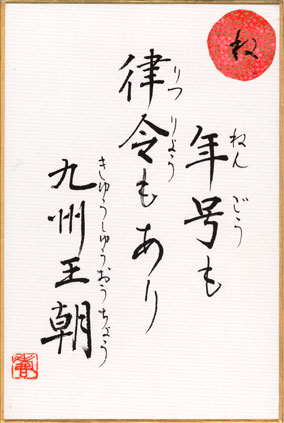 年号も
ねんごう
律令もあり
りつりょう
九州王朝
きゅうしゅうおうちょう